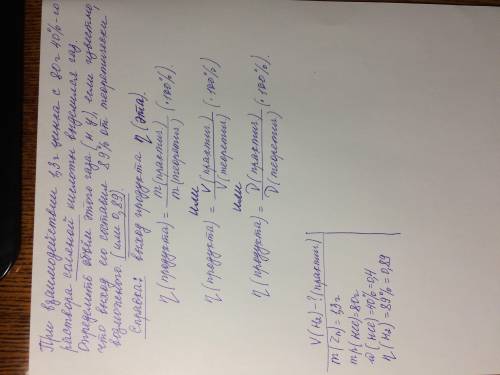 При взаимодействии 1,3г цинка с 80г 40%-го
раствора соляной кислоты выделился газ.
Определить объём этого газа (н у), если известно,
что выход его составил 89% от теоретически
возможного (или 0,89).
Справка: выход продукта η (эта).
η (продукта) = m(практич) / m(теоретич) (·100%).
или
η (продукта) = V(практич) / V(теоретич) (·100%)
или
η (продукта) = ν(практич) / ν(теоретич) (·100%).
V(H₂) - ? (практич)
m(Zn) = 1,3г
mр(HCl) = 80г
ω(HCl) = 40% = 0,4
η(H₂) = 89% = 0,89